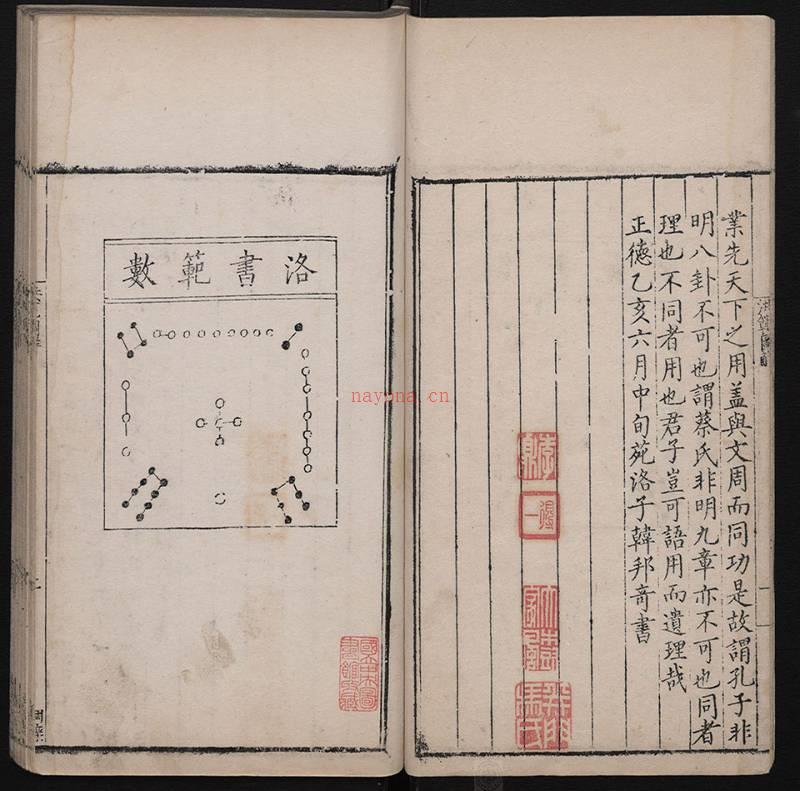 業先天下之用蓋與文周而同功是故謂孔子非
明八卦不可也謂蔡氏非明九章亦不可也同者
理也不同者用也君子豈可語用而遺理哉
正德乙亥六月中旬苑洛子韓邦奇書
洛書範數
nayona.cn